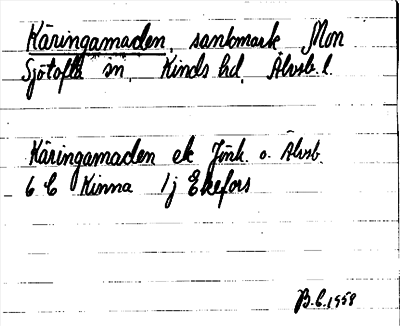 Käringamaden, sankmark Mon
Sjötofta sn, Kinds hd, Älvsb. l.
Käringamaden ek Jönk. o. Älvsb.
6 C Kinna 1j Ekefors
B.C. 1958